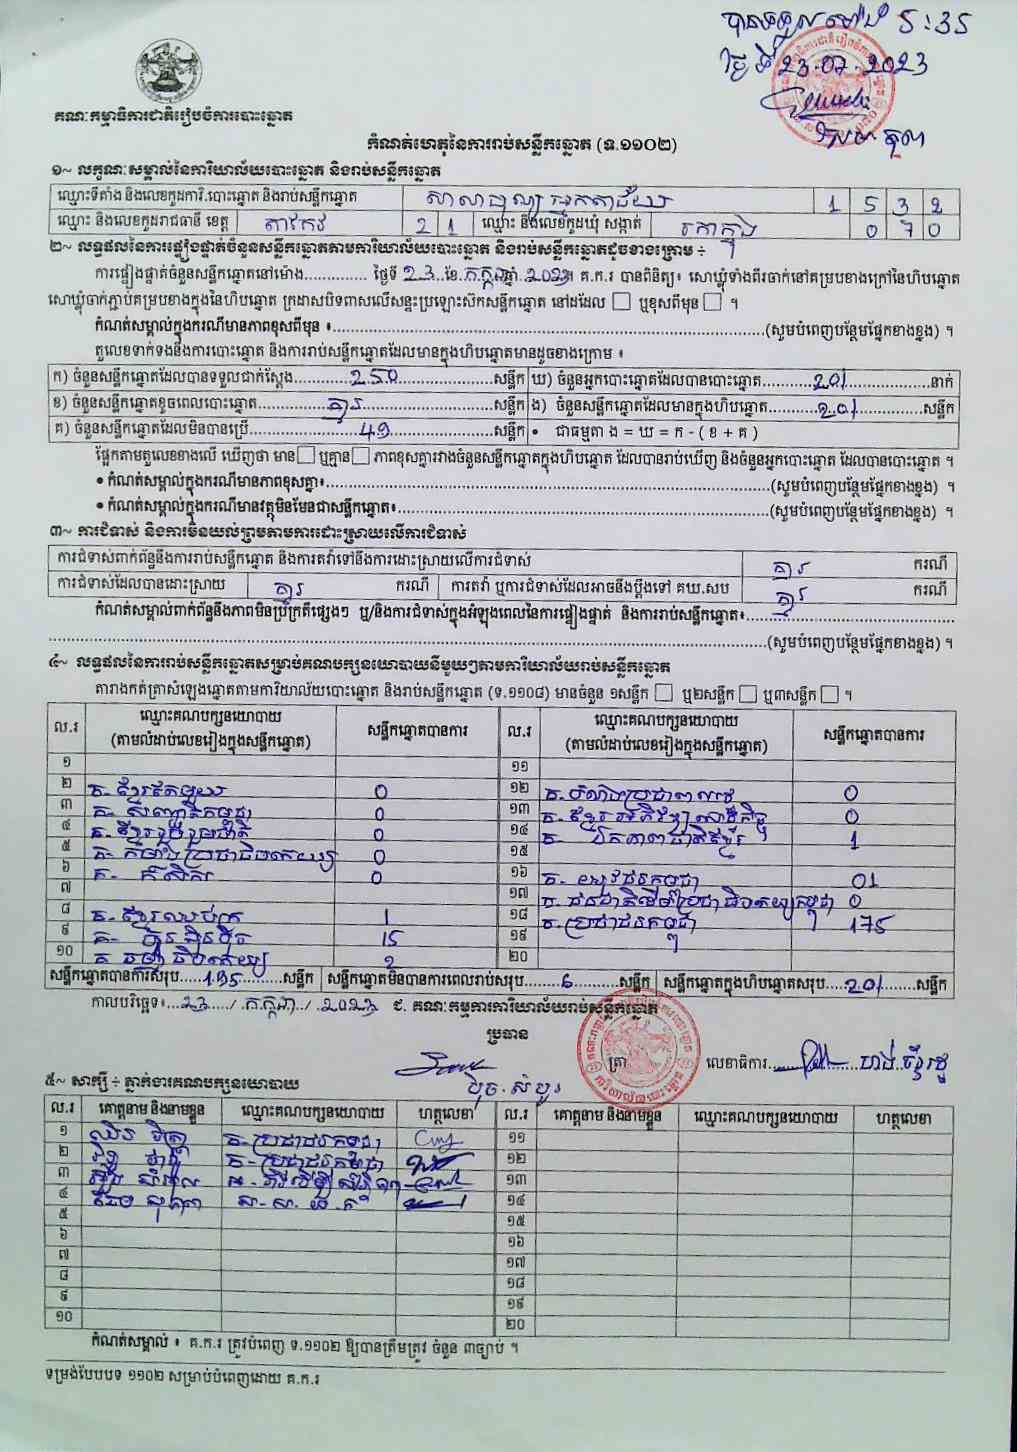 បានទទួល ម៉ោង 5:35
ថ្ងៃ ទី 23.07.2023
គណៈកម្មាធិការជាតិរៀបចំការបោះឆ្នោត
កំណត់ហេតុនៃការរាប់សន្លឹកឆ្នោត (ទ.១១០២)
១~ លក្ខណៈសម្គាល់នៃការិយាល័យបោះឆ្នោត និងរាប់សន្លឹកឆ្នោត
ឈ្មោះទីតាំង និងលេខកូដការិ.បោះឆ្នោត និងរាប់សន្លឹកឆ្នោត 1 5 3 2
ឈ្មោះ និងលេខកូដរាជធានី ខេត្ត តាកែវ 2 1 ឈ្មោះ និងលេខកូដឃុំ សង្កាត់ 0 7 0
២~ លទ្ធផលនៃការផ្ទៀងផ្ទាត់ចំនួនសន្លឹកឆ្នោតតាមការិយាល័យបោះឆ្នោត និងរាប់សន្លឹកឆ្នោតដូចខាងក្រោម ÷
ការផ្ទៀងផ្ទាត់ចំនួនសន្លឹកឆ្នោតនៅម៉ោង.............. ថ្ងៃទី 23 ខែ កក្កដា ឆ្នាំ 2023។ គ.ក.រ បានពិនិត្យ៖ សោឃ្លុំទាំងពីរចាក់នៅគម្របខាងក្រៅនៃហិបឆ្នោត
សោឃ្លុំចាក់ភ្ជាប់គម្របខាងក្នុងនៃហិបឆ្នោត ក្រដាសបិទពាសលើសន្ទះប្រឡោះសិកសន្លឹកឆ្នោត នៅដដែល ☐ ឬខុសពីមុន ☐ ។
កំណត់សម្គាល់ក្នុងករណីមានភាពខុសពីមុន ៖..............(សូមបំពេញបន្ថែមផ្នែកខាងខ្នង) ។
តួលេខទាក់ទងនឹងការបោះឆ្នោត និងការរាប់សន្លឹកឆ្នោតដែលមានក្នុងហិបឆ្នោតមានដូចខាងក្រោម ៖
ក) ចំនួនសន្លឹកឆ្នោតដែលបានទទួលជាក់ស្តែង 250 សន្លឹក ឃ) ចំនួនអ្នកបោះឆ្នោតដែលបានបោះឆ្នោត 201 នាក់
ខ) ចំនួនសន្លឹកឆ្នោតខូចពេលបោះឆ្នោត គ្មាន សន្លឹក ង) ចំនួនសន្លឹកឆ្នោតដែលមានក្នុងហិបឆ្នោត 201 សន្លឹក
គ) ចំនួនសន្លឹកឆ្នោតដែលមិនបានប្រើ 49 សន្លឹក • ជាធម្មតា ង = ឃ = ក - ( ខ + គ )
ផ្អែកតាមតួលេខខាងលើ ឃើញថា មាន ☐ ឬគ្មាន ☐ ភាពខុសគ្នារវាងចំនួនសន្លឹកឆ្នោតក្នុងហិបឆ្នោត ដែលបានរាប់ឃើញ និងចំនួនអ្នកបោះឆ្នោត ដែលបានបោះឆ្នោត ។
• កំណត់សម្គាល់ក្នុងករណីមានភាពខុសគ្នា៖..............(សូមបំពេញបន្ថែមផ្នែកខាងខ្នង) ។
• កំណត់សម្គាល់ក្នុងករណីមានវត្ថុមិនមែនជាសន្លឹកឆ្នោត៖..............(សូមបំពេញបន្ថែមផ្នែកខាងខ្នង) ។
៣~ ការជំទាស់ និងការមិនយល់ព្រមតាមការដោះស្រាយលើការជំទាស់
ការជំទាស់ពាក់ព័ន្ធនឹងការរាប់សន្លឹកឆ្នោត និងការតវ៉ាទៅនឹងការដោះស្រាយលើការជំទាស់ គ្មាន ករណី
ការជំទាស់ដែលបានដោះស្រាយ គ្មាន ករណី ការតវ៉ា ឬការជំទាស់ដែលអាចនឹងប្តឹងទៅ គឃ.សប គ្មាន ករណី
កំណត់សម្គាល់ពាក់ព័ន្ធនឹងភាពមិនប្រក្រតីផ្សេងៗ ឬ/និងការជំទាស់ក្នុងអំឡុងពេលនៃការផ្ទៀងផ្ទាត់ និងការរាប់សន្លឹកឆ្នោត៖..............
..............(សូមបំពេញបន្ថែមផ្នែកខាងខ្នង) ។
៤~ លទ្ធផលនៃការរាប់សន្លឹកឆ្នោតសម្រាប់គណបក្សនយោបាយនីមួយៗតាមការិយាល័យរាប់សន្លឹកឆ្នោត
តារាងកត់ត្រាសំឡេងឆ្នោតតាមការិយាល័យបោះឆ្នោត និងរាប់សន្លឹកឆ្នោត (ទ.១១០៨) មានចំនួន ១សន្លឹក ☐ ឬ២សន្លឹក ☐ ឬ៣សន្លឹក ☐ ។
ល.រ ឈ្មោះគណបក្សនយោបាយ សន្លឹកឆ្នោតបានការ ល.រ ឈ្មោះគណបក្សនយោបាយ សន្លឹកឆ្នោតបានការ
(តាមលំដាប់លេខរៀងក្នុងសន្លឹកឆ្នោត) (តាមលំដាប់លេខរៀងក្នុងសន្លឹកឆ្នោត)
១ ១១
២ គ. ខ្មែរតែមួយ 0 ១២ 0
៣ 0 ១៣ 0
៤ គ. ខ្មែររួបរួមជាតិ 0 ១៤ 1
៥ គ. កម្លាំងប្រជាធិបតេយ្យ 0 ១៥
៦ គ. កសិករ 0 ១៦ គ. យុវជនកម្ពុជា 01
៧ ១៧ 0
៨ គ. ខ្មែរឈប់ក្រ 1 ១៨ គ. ប្រជាជនកម្ពុជា 175
៩ គ. ហ៊្វុនស៊ិនប៉ិច 15 ១៩
១០ គ. ធម្មាធិបតេយ្យ 2 ២០
សន្លឹកឆ្នោតបានការសរុប 195 សន្លឹក សន្លឹកឆ្នោតមិនបានការពេលរាប់សរុប 6 សន្លឹក សន្លឹកឆ្នោតក្នុងហិបឆ្នោតសរុប 201 សន្លឹក
កាលបរិច្ឆេទ៖ 23 / កក្កដា / 2023 ជ. គណៈកម្មការការិយាល័យរាប់សន្លឹកឆ្នោត
ប្រធាន
ត្រា លេខាធិការ
៥~ សាក្សី ÷ ភ្នាក់ងារគណបក្សនយោបាយ
ល.រ គោត្តនាម និងនាមខ្លួន ឈ្មោះគណបក្សនយោបាយ ហត្ថលេខា ល.រ គោត្តនាម និងនាមខ្លួន ឈ្មោះគណបក្សនយោបាយ ហត្ថលេខា
១ គ. ប្រជាជនកម្ពុជា ១១
២ គ. ប្រជាជនកម្ពុជា ១២
៣ ១៣
៤ ១៤
៥ ១៥
៦ ១៦
៧ ១៧
៨ ១៨
៩ ១៩
១០ ២០
កំណត់សម្គាល់ ៖ គ.ក.រ ត្រូវបំពេញ ទ.១១០២ ឱ្យបានត្រឹមត្រូវ ចំនួន ៣ច្បាប់ ។
ទម្រង់បែបបទ ១១០២ សម្រាប់បំពេញដោយ គ.ក.រ